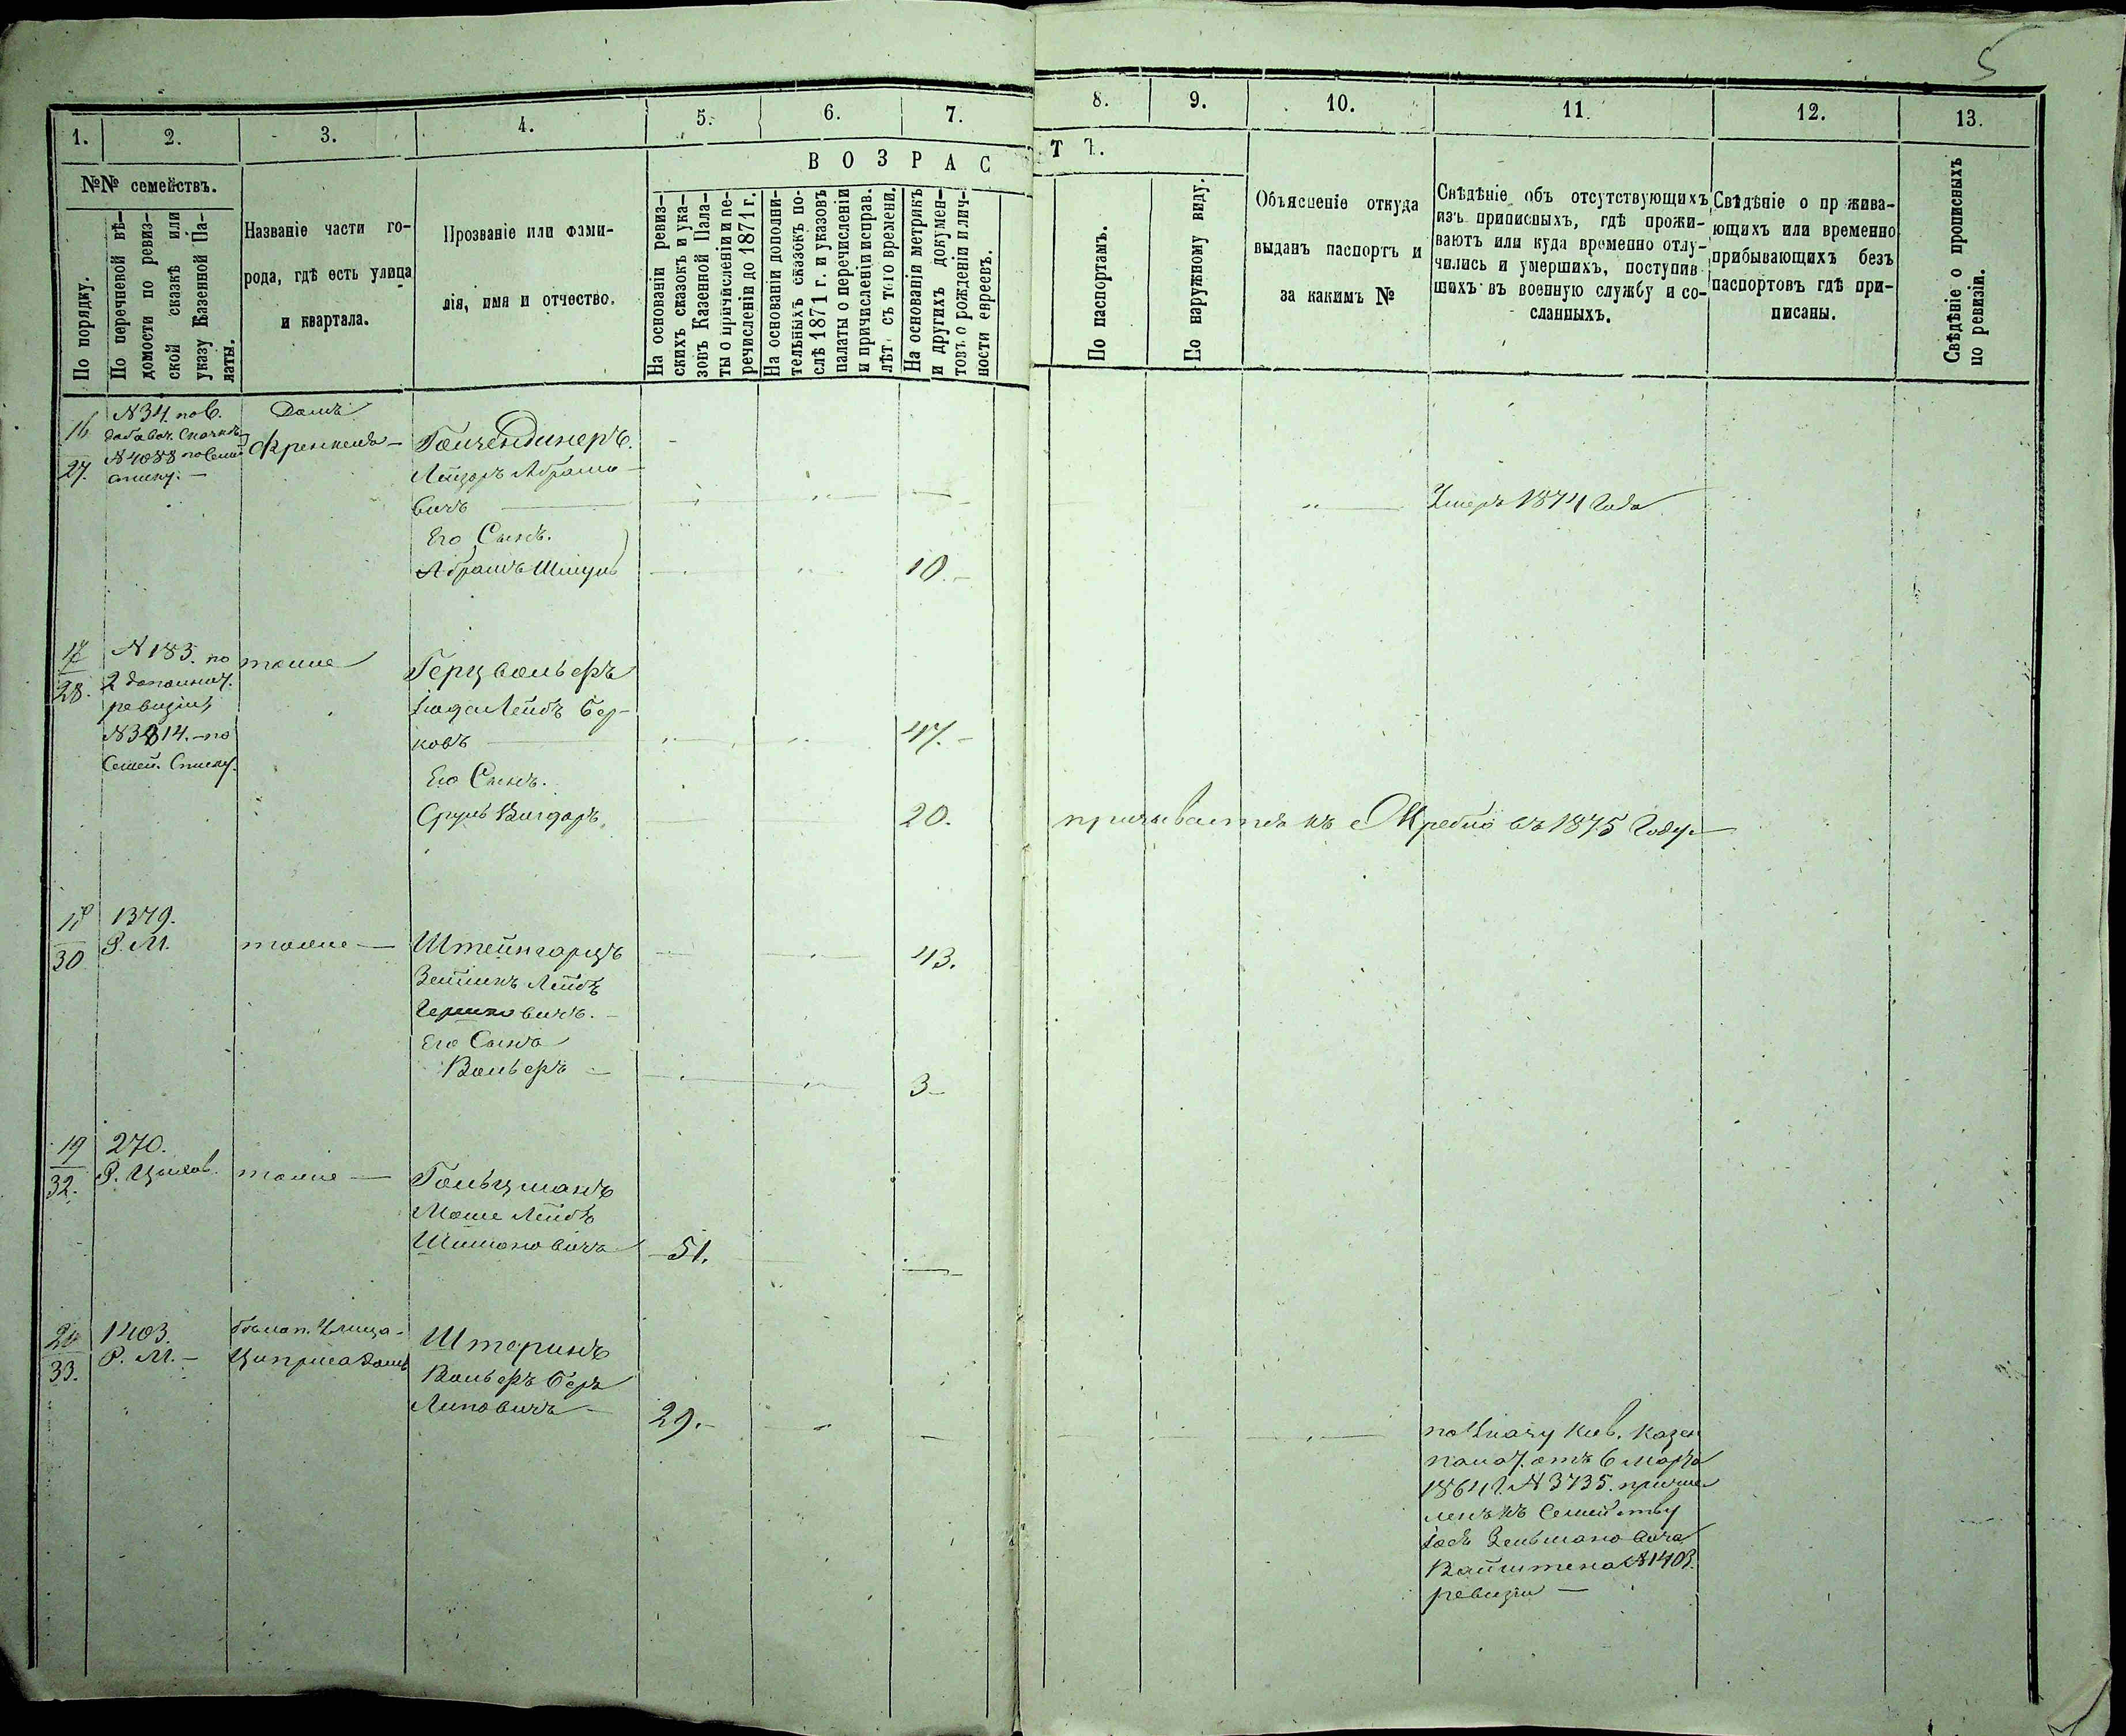 5
1.
2.
3.
4.
5.
6.
7.
8.
9.
10.
11.
12.
13.
№№ семействъ.
По порядку.
По перечневой вѣ-
домости по ревиз-
ской сказкѣ или
указу Казенной Па-
латы.
Названіе части го-
рода, гдѣ есть улица
и квартала.
Прозваніе или фами-
лія, имя и отчество.
ВОЗРАС
ТЪ.
На основаніи ревиз-
скихъ сказокъ и ука-
зовъ Казенной Пала-
ты о причисленіи и пе-
речисленіи до 1871 г.
На основаніи дополни-
тельныхъ сказокъ по-
слѣ 1871 г. и указовъ
палаты о перечисленіи
и причисленіи исправ.
лѣтъ съ того времени.
На основаніи метрикъ
и другихъ докумен-
товъ о рожденіи и лич-
ности евреевъ.
По паспортамъ.
По наружному виду.
Объясненіе откуда
выданъ паспортъ и
за какимъ №
Свѣдѣніе объ отсутствующихъ
изъ приписныхъ, гдѣ прожи-
ваютъ или куда временно отлу-
чились и умершихъ, поступив
шихъ въ военную службу и со-
сланныхъ.
Свѣдѣніе о пр жива-
ющихъ или временно
прибывающихъ безъ
паспортовъ гдѣ при-
писаны.
Свѣдѣніе о прописныхъ
по ревизіи.
16
27.
№ 34. по
№ 4088 по Семей
списку. —
Домъ
Френкеля —
Гольчендинеръ.
Лейзоръ Абрамо-
вичъ
Умеръ 1874 Года
Его Сынъ.
Абрамъ Шмуль
10. —
17
28.
№ 183. по
2 дополнит.
ревизіи,
№ 3814. — по
Семей. Списку.
тоже
Герцвольфъ
Іуда Лейбъ Бер-
ковъ
47. —
Его Сынъ.
Сруль Вигдоръ.
20.
призывается къ Жребію въ 1875 Году —
18
30
1379.
Р. М.
тоже —
Штейнгарцъ
43.
Зейликъ Лейбъ
Гершковичъ. —
Его Сынъ
Вольфъ —
3 —
19
32.
270.
Р.
тоже —
Гольцманъ
Моше Лейбъ
Шимоновичъ
51.
20
33.
1403.
Р. М. —
Улица
Циприса домъ
Штеринъ
Вольфъ Беръ
Липовичъ —
29. —
по Указу Кіев. Казен
палат. отъ 6 Марта
1864 г. № 3735. причис
ленъ къ Семейству
Зельмановича
Вайнштена № 1403.
ревизіи —